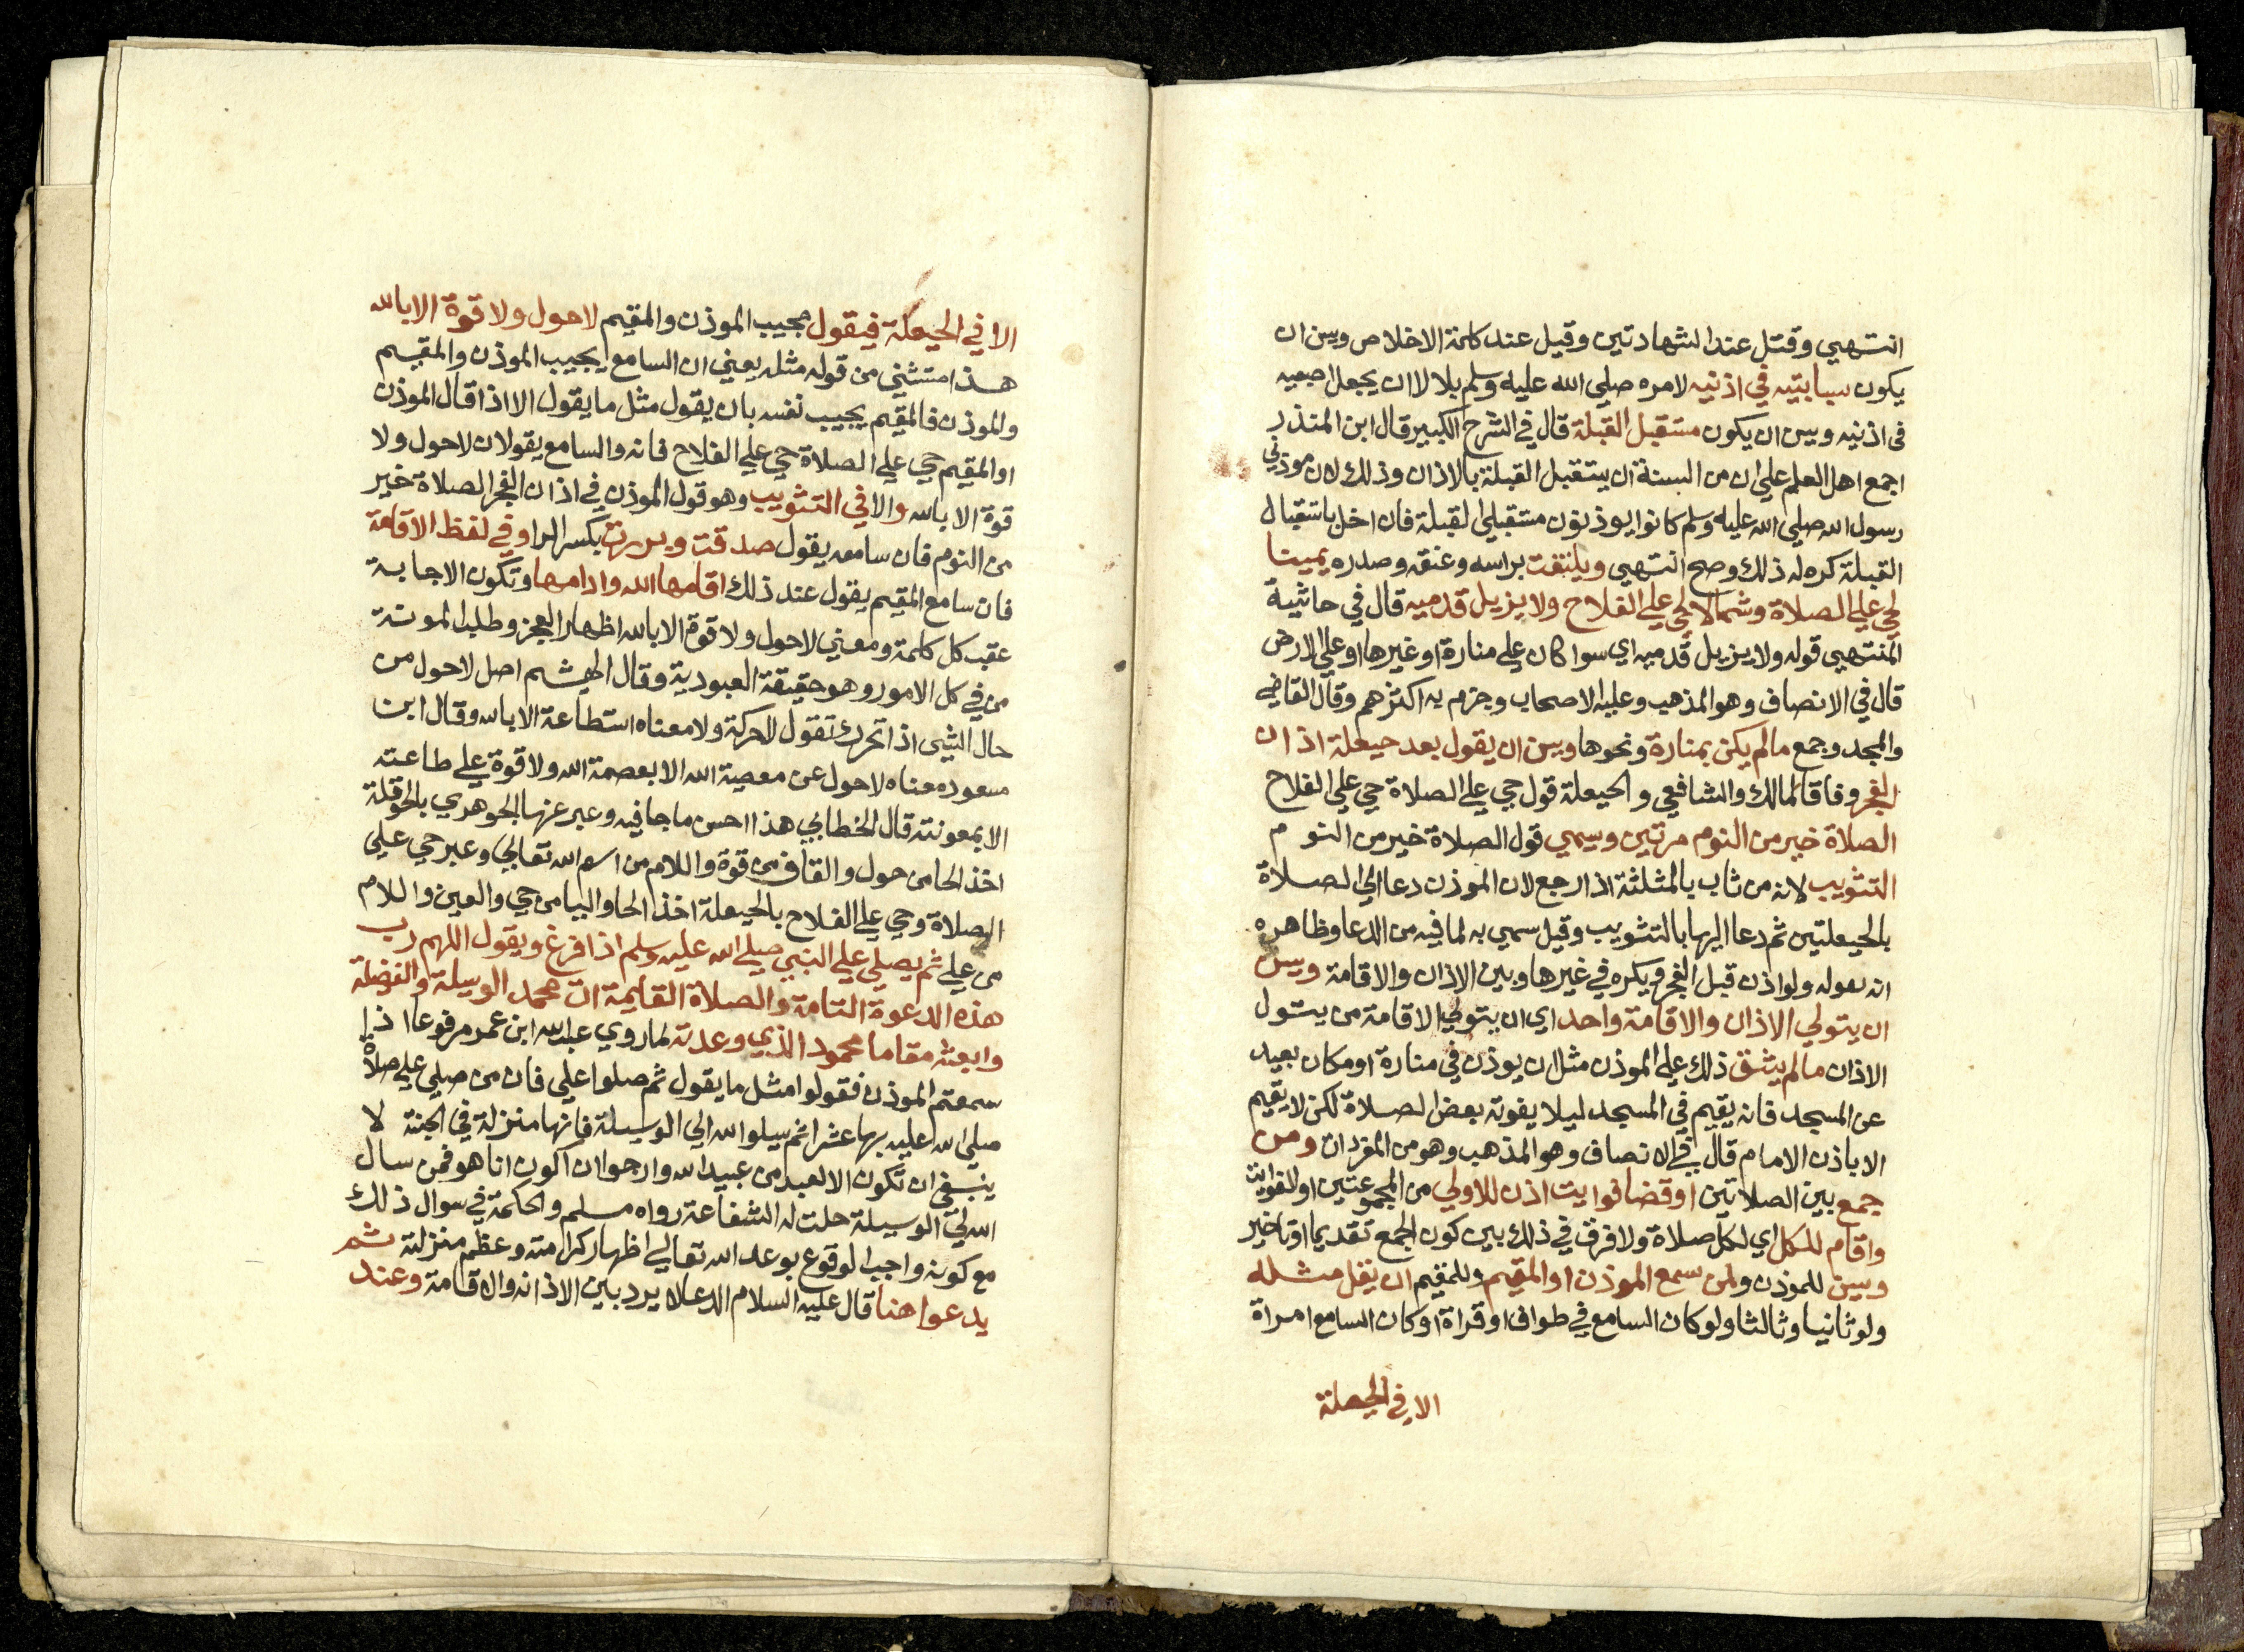 انتهي وقتل عند الشهادتين وقيل عند كلمة الاخلاص ويسن ان
يكون سبابتيه في اذنيه لامره صلي الله عليه وسلم بلالا ان يجعل اصبعيه
في اذنيه ويسن ان يكون مستقبل القبلة قال في الشرح الكبير قال ابن المنذر
اجمع اهل العلم علي ان من السنة ان يستقبل القبلة بالاذان وذلك لان موذني
رسول الله صلي الله عليه وسلم كانوا يوذنون مستقبلي القبلة فان اخل باستقبال
القبلة كره له ذلك وصح انتهي ويلتفت براسه وعنقه وصدره يمينا
لحي علي الصلاة وشمالا لحي علي الفلاح ولا يزيل قدميه قال في حاشية
المنتهي قوله ولا يزيل قدميه اي سوا كان علي منارة او غيرها او علي الارض
قال في الانصاف وهو المذهب وعليه الاصحاب وجزم به اكثرهم وقال القاضي
والمجد وجمع مالم يكن بمنارة ونحوها ويسن ان يقول بعد حيعلة اذان
الفجر وفاقا لمالك والشافعي والحيعلة قول حي علي الصلاة حي علي الفلاح
الصلاة خير من النوم مرتين ويسمي قول الصلاة خير من النوم
التثويب لانه من ثاب بالمثلثة اذا رجع لان الموذن دعا الي الصلاة
بالحيعلتين ثم دعا اليها بالتثويب وقيل سمي به لما فيه من الدعا وظاهره
انه يقوله ولو اذن قبل الفجر ويكره في غيرها وبين الاذان والاقامة ويسن
ان يتولي الاذان والاقامة واحد اي ان يتولي الاقامة من يتول
الاذان مالم يشق ذلك علي الموذن مثل ان يوذن في منارة او مكان بعيد
عن المسجد فانه يقيم في المسجد ليلا يفوته بعض الصلاة لكن لا يقيم
الا باذن الامام قال في الانصاف وهو المذهب وهو من المفردات ومن
جمع بين الصلاتين او قضا فوايت اذن للاولي من المجموعتين او الفوايت
واقام للكل اي لكل صلاة ولا فرق في ذلك بين كون الجمع تقديما او تاخير
ويسن للموذن ولمن سمع الموذن او المقيم وللمقيم ان يقل مثله
ولو ثانيا وثالثا ولو كان السامع في طواف او قراة او كان السامع امراة
الا في الحيعلة
الا في الحيعلة فيقول مجيب الموذن والمقيم لاحول ولا قوة الا بالله
هذا مستثني من قوله مثله يعني ان السامع يجيب الموذن والمقيم
والموذن فالمقيم يجيب نفسه بان يقول مثل ما يقول الا اذا قال الموذن
او المقيم حي علي الصلاة حي علي الفلاح فانه والسامع يقولان لاحول ولا
قوة الا بالله والا في التثويب وهو قول الموذن في اذان الفجر الصلاة خير
من النوم فان سامعه يقول صدقت وبررت بكسر الرا وفي لفظ الاقامة
فان سامع المقيم يقول عند ذلك اقامها الله وادامها وتكون الاجابة
عقب كل كلمة ومعني لاحول ولا قوة الا بالله اظهار العجز وطلب المونة
من في كل الامور وهو حقيقة العبودية وقال الهيثم اصل لاحول من
حال الشي اذا تحرك تقول لا حركة ولا معناه استطاعة الا بالله وقال ابن
مسعود معناه لاحول عن معصية الله الا بعصمة الله ولا قوة علي طاعته
الا بمعونته قال الخطابي هذا احسن ما جا فيه وعبر عنها الجوهري بالحوقلة
اخذ الحا من حول والقاف من قوة واللام من اسم الله تعالي وعبر حي علي
الصلاة وحي علي الفلاح بالحيعلة اخذ الحا واليا من حي والعين واللام
من علي ثم يصلي علي النبي صلي الله عليه وسلم اذا فرغ ويقول اللهم رب
هذه الدعوة التامة والصلاة القايمة ات محمد الوسيلة والفضلة
وابعثه مقاما محمود الذي وعدته لما روي عبدالله ابن عمر مرفوعا اذا
سمعتم الموذن فقولوا مثل ما يقول ثم صلوا علي فان من صلي علي صلاة
صلي الله عليه بها عشرا ثم سيلوا الله الي الوسيلة فانها منزلة في الجنة لا
ينبغي ان تكون الا لعبد من عبيد الله وارجوا ان اكون انا هو فمن سال
الله لي الوسيلة حلت له الشفاعة رواه مسلم والحكمة في سوال ذلك
مع كونه واجب الوقوع بوعد الله تعالي اظهار كرامته وعظم منزلته ثم
يدعوا هنا قال عليه السلام الدعا لا يرد بين الاذانه والاقامة وعند